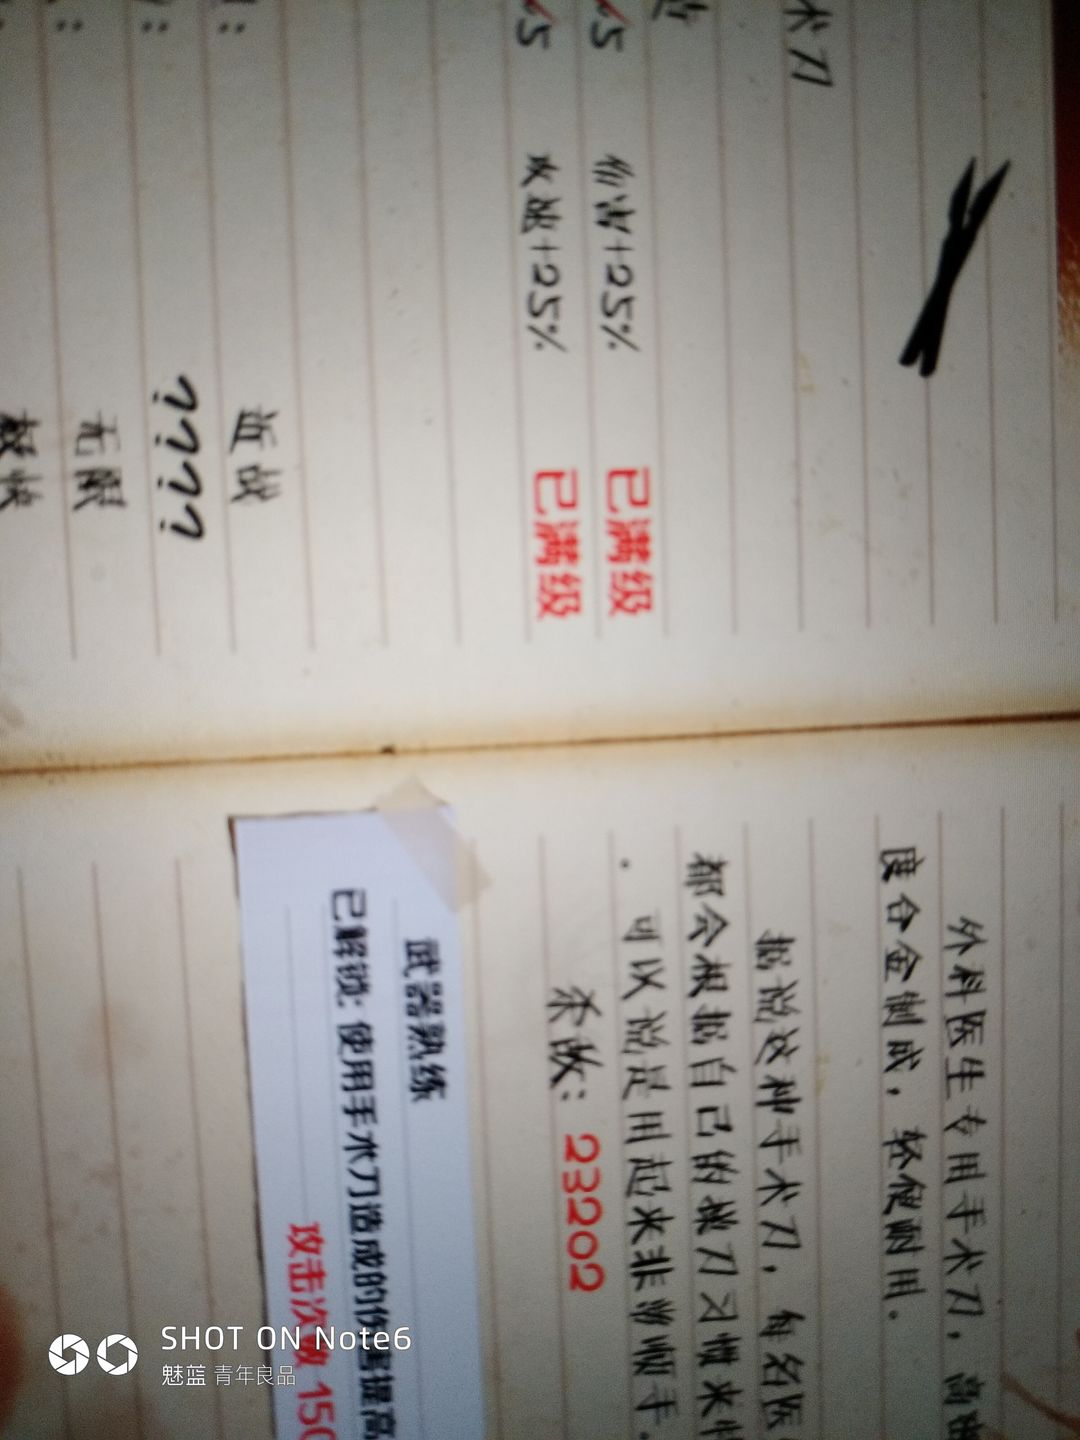 术刀
/5 伤害+25% 已满级
/5 攻速+25% 已满级
近战
????
无限
外科医生专用手术刀，高
度合金制成，轻便耐用。
据说这种手术刀，每名医
都会根据自己的操刀习惯来
。可以说是用起来非常顺手。
杀敌：23202
武器熟练
已解锁: 使用手术刀造成的伤害提高
攻击次数 150
SHOT ON Note6
魅蓝 青年良品